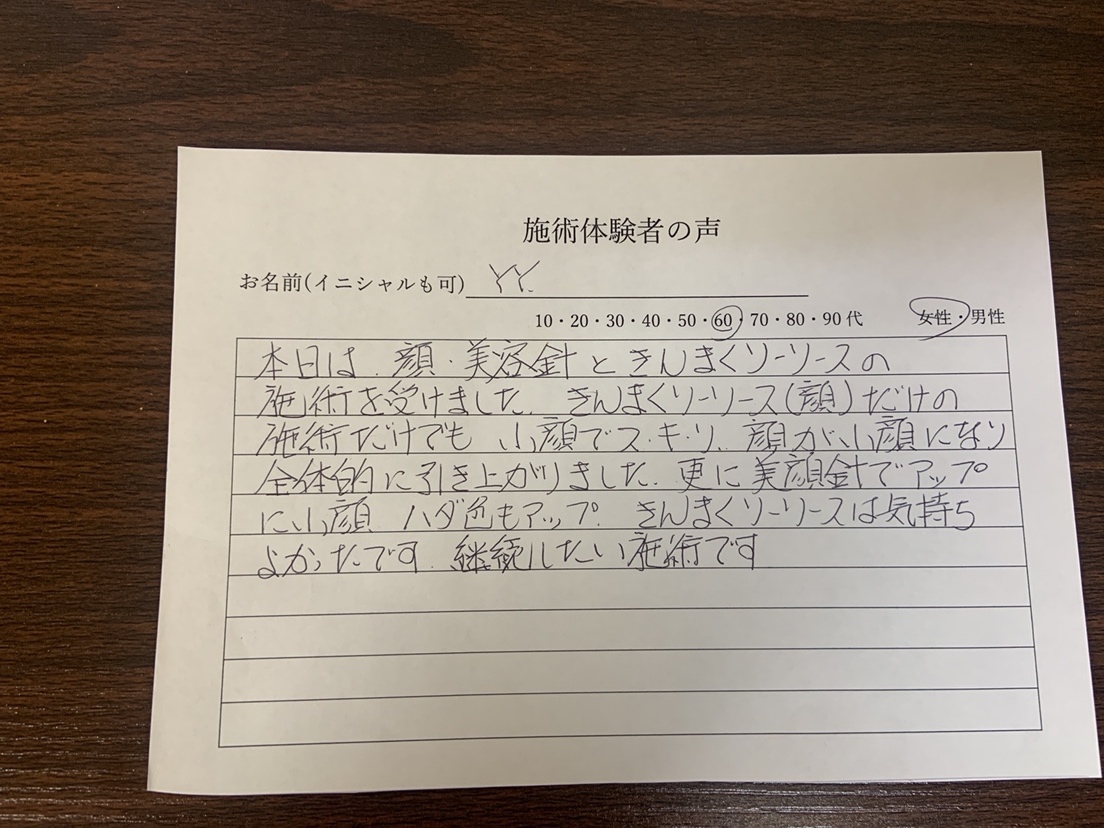 施術体験者の声
お名前(イニシャルも可) YY.
10・20・30・40・50・60・70・80・90代 女性・男性
本日は.顔・美容針ときんまくリーリースの
施術を受けました. きんまくリーリース(顔)だけの
施術だけでも 小顔でス・キ・リ. 顔が小顔になり
全体的に引き上がりました. 更に美顔針でアップ
に小顔 ハダ色もアップ. きんまくリーリースは気持ち
よかったです. 継続したい施術です